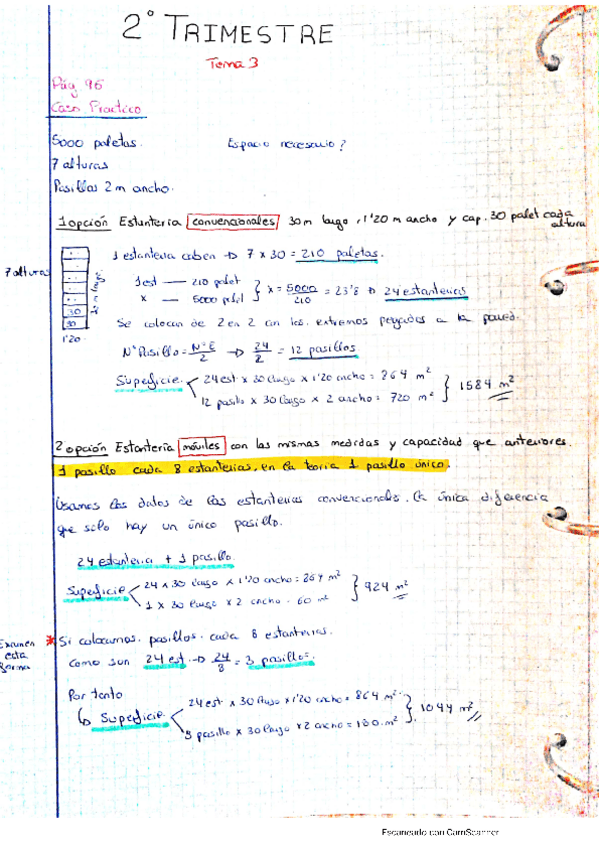 2º TRIMESTRE
Tema 3
Pág 96
Caso Practico
5000 paletas. Espacio necesario?
7 alturas
Pasillos 2 m ancho.
1 opción Estantería convencionales 30m largo, 1'20 m ancho y cap. 30 palet cada altura
7 alturas
30
30
1'20
30 m largo
1 estantería caben → 7 x 30 = 210 paletas.
1est — 210 palet
x — 5000 palet } x = 5000/210 = 23'8 → 24 estanterías
Se colocan de 2 en 2 con los extremos pegados a la pared.
Nº Pasillo = NºE/2 → 24/2 = 12 pasillos
Superficie 24 est x 30 largo x 1'20 ancho = 864 m²
12 pasillo x 30 largo x 2 ancho = 720 m² } 1584 m²
2 opción Estantería móviles con las mismas medidas y capacidad que anteriores.
1 pasillo cada 8 estanterías, en la teoría 1 pasillo único.
Usamos los datos de las estanterías convencionales. la única diferencia
que solo hay un único pasillo.
24 estantería + 1 pasillo.
Superficie 24 x 30 largo x 1'20 ancho = 864 m²
1 x 30 largo x 2 ancho = 60 m² } 924 m²
Examen esta forma
* Si colocamos pasillos cada 8 estanterías.
Como son 24 est → 24/8 = 3 pasillos.
Por tanto
↳ Superficie 24 est x 30 largo x 1'20 ancho = 864 m²
3 pasillo x 30 largo x 2 ancho = 180 m² } 1044 m²
Escaneado con CamScanner